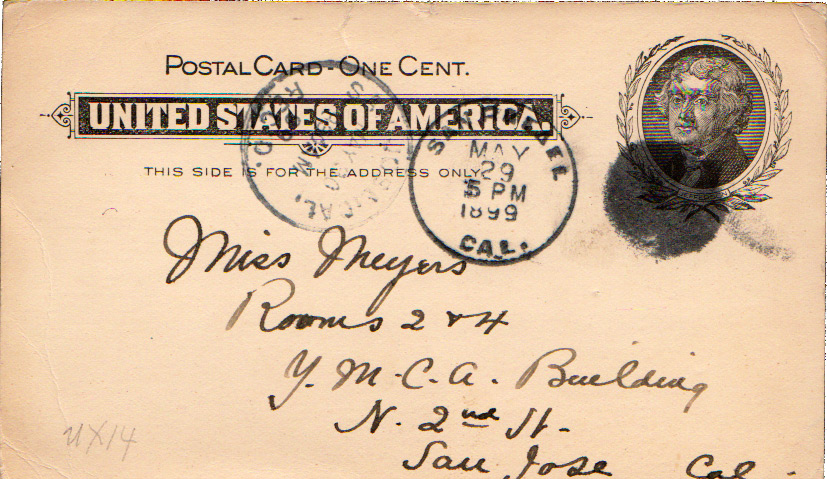 POSTAL CARD - ONE CENT.
UNITED STATES OF AMERICA.
THIS SIDE IS FOR THE ADDRESS ONLY.
MAY
29
5 PM
1899
CAL.
REC'D.
CAL.
Miss Meyers
Rooms 2 & 4
Y. M. C. A. Building
N. 2nd St.
San Jose Cal.
UX14